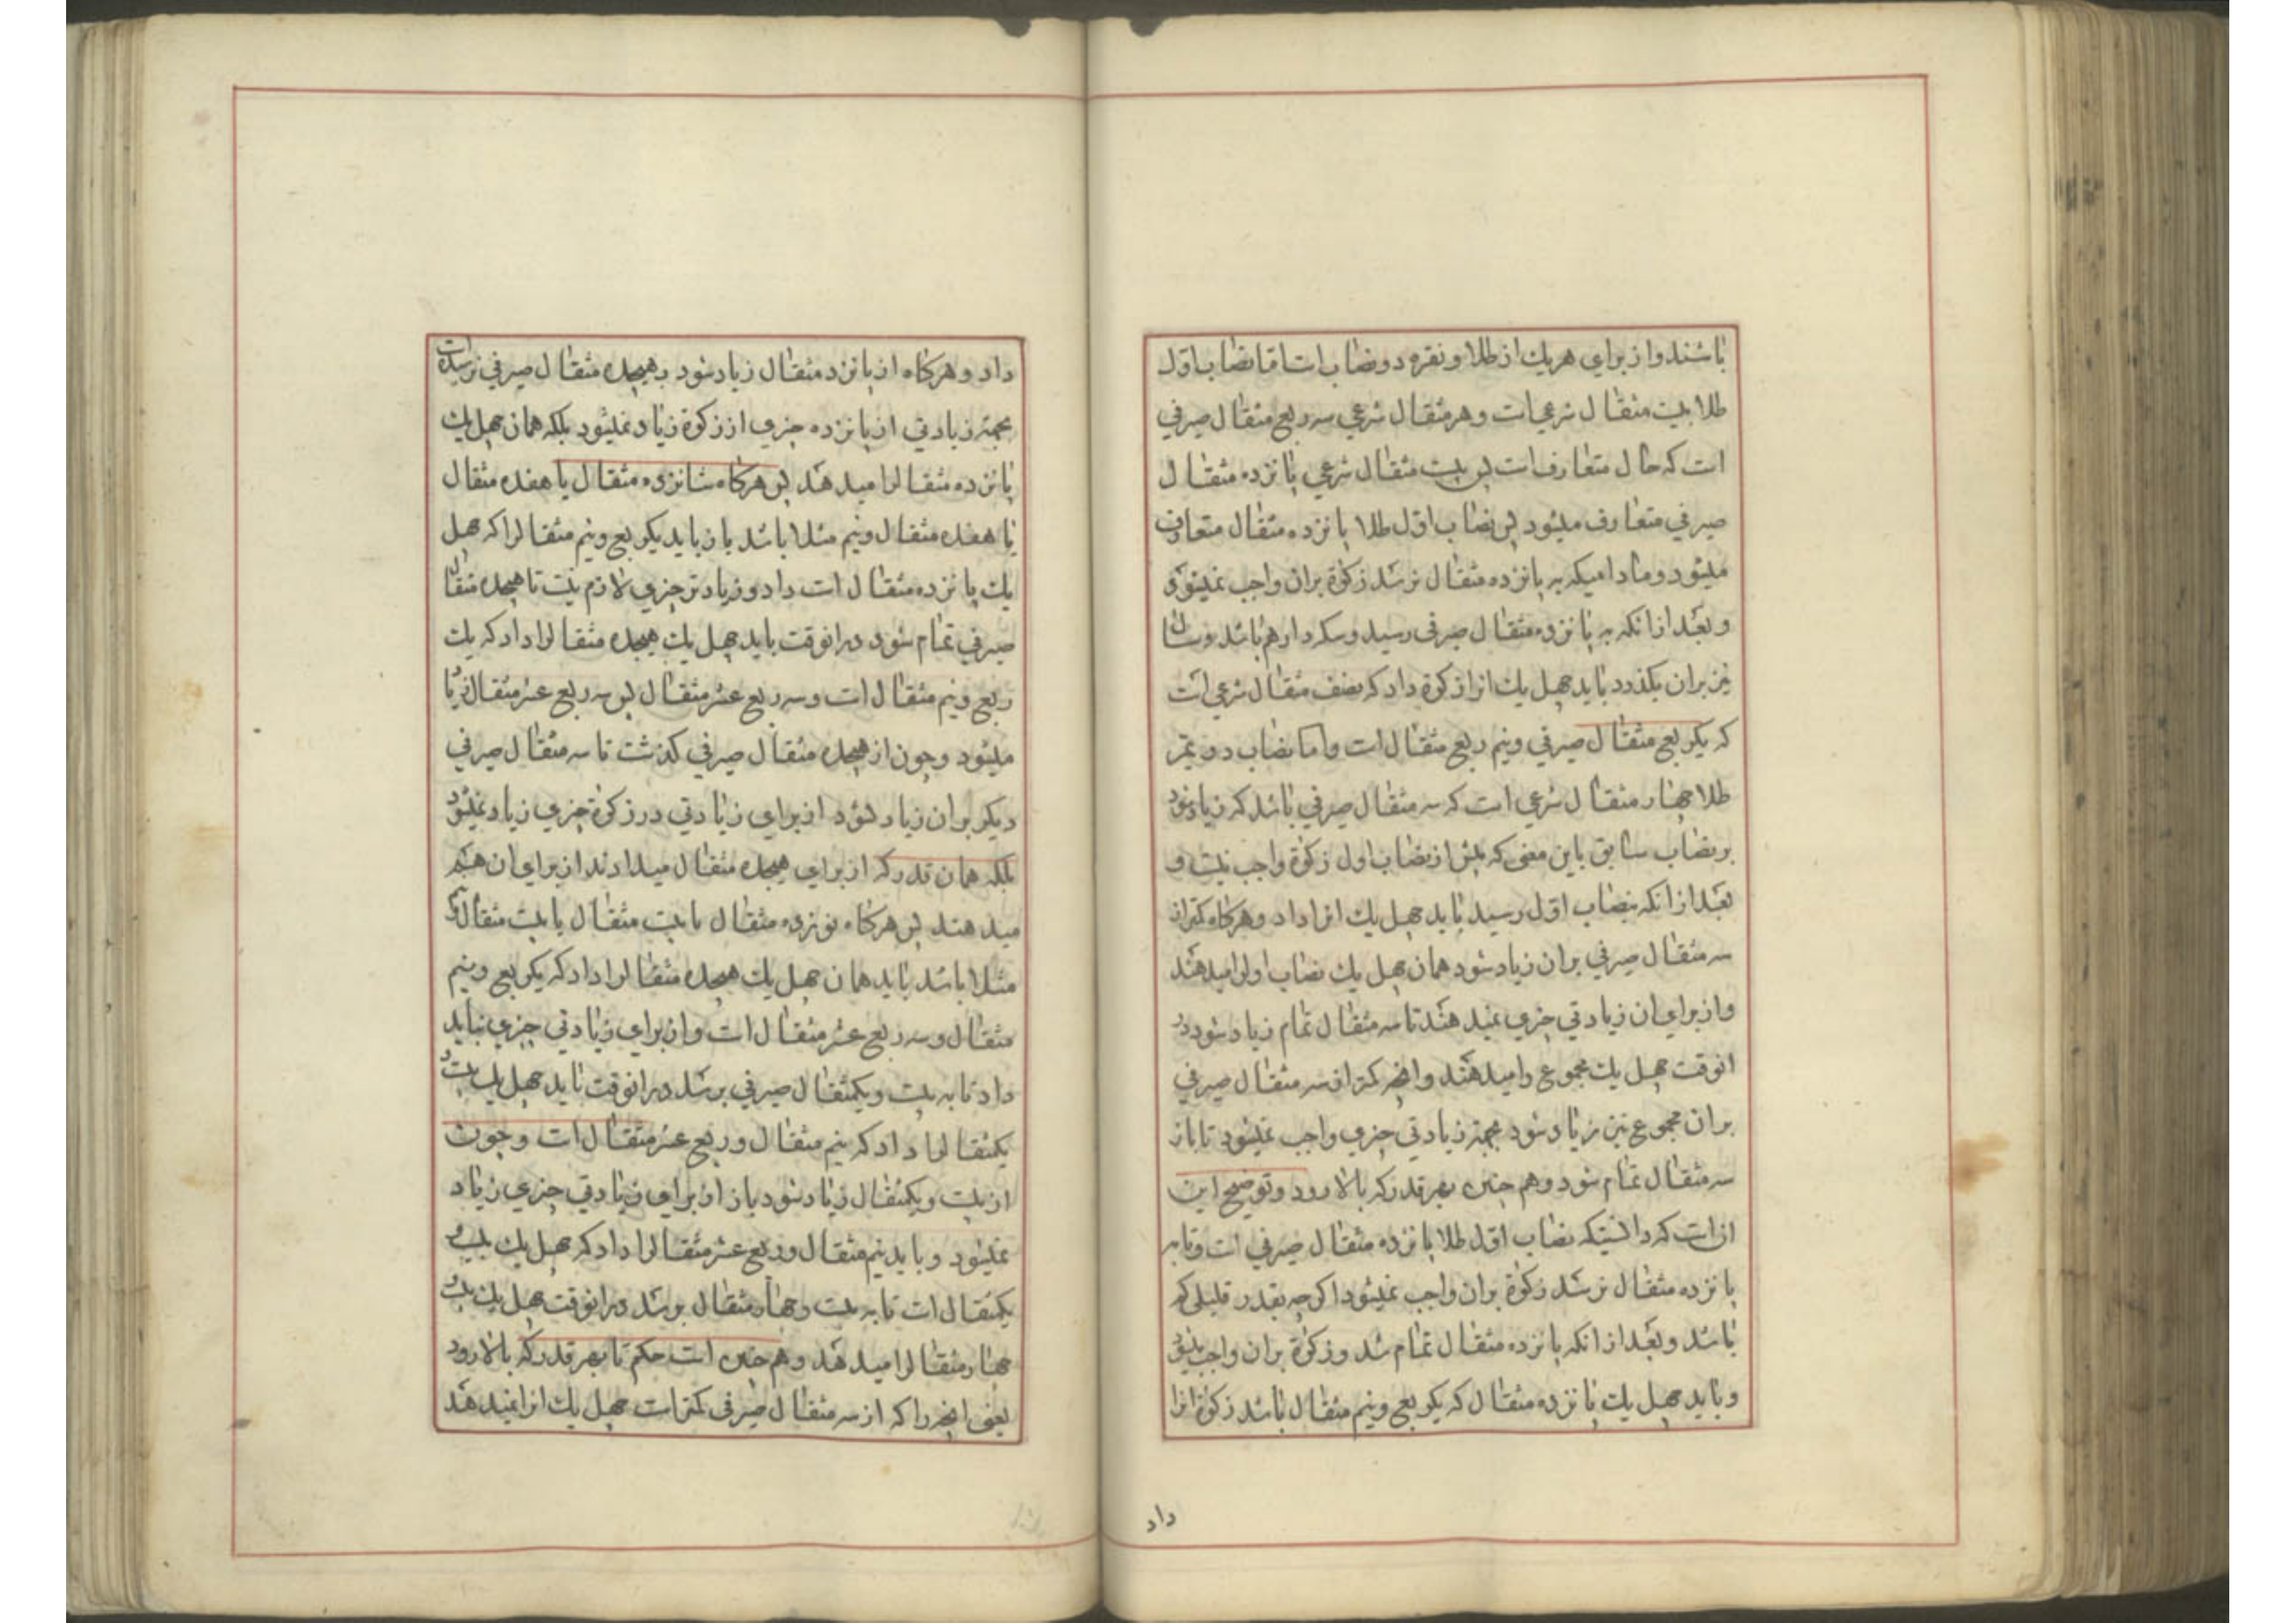 باشند و از برای هر یك از طلا و نقره دو نصاب است اما نصاب اول
طلا بیست مثقال شرعی است و هر مثقال شرعی سه ربع مثقال صیرفی
است که حال متعارف است پس بیست مثقال شرعی پانزده مثقال
صیرفی متعارف میشود پس نصاب اول طلا پانزده مثقال متعارف
میشود و مادامیکه به پانزده مثقال نرسد زکوة بران واجب نمیشود
و بعد از انکه به پانزده مثقال صیرفی رسید و سکه دار هم باشد و سال
نیز بران بگذرد باید چهل یك انرا زکوة داد که نصف مثقال شرعی است
که یکربع مثقال صیرفی و نیم ربع مثقال است و اما نصاب دویم
طلا چهار مثقال شرعی است که سه مثقال صیرفی باشد که زیاد شود
بر نصاب سابق باین معنی که پیش از نصاب اول زکوة واجب نیست و
بعد از انکه بنصاب اول رسید باید چهل یك انرا داد و هرکاه کمتر از
سه مثقال صیرفی بران زیاد شود همان چهل یك نصاب اول را میدهند
و از برای ان زیادتی چیزی نمیدهند تا سه مثقال تمام زیاد شود در
انوقت چهل یك مجموع را میدهند و انچه کمتر از سه مثقال صیرفی
بران مجموع نیز زیاد شود بجهة زیادتی چیزی واجب نمیشود تا باز
سه مثقال تمام شود و هم چنین بهر قدر که بالا رود و توضیح این
ان است که دانستیکه نصاب اول طلا پانزده مثقال صیرفی است و تا به
پانزده مثقال نرسد زکوة بران واجب نمیشود اکرچه بقدر قلیلی کم
باشد و بعد از انکه پانزده مثقال تمام شد و زکوة بران واجب میشود
و باید چهل یك پانزده مثقال که یکربع و نیم مثقال باشد زکوة انرا
داد
داد و هرکاه از پانزده مثقال زیاد شود و بهیجده مثقال صیرفی نرسیده است
بجهة زیادتی از پانزده چیزی از زکوة زیاد نمیشود بلکه همان چهل یك
پانزده مثقال را میدهند پس هرکاه شانزده مثقال یا هفده مثقال
یا هفده مثقال و نیم مثلا باشد باز باید یکربع و نیم مثقال را که چهل
یك پانزده مثقال است داد و زیادتر چیزی لازم نیست تا هیجده مثقال
صیرفی تمام شود در انوقت باید چهل یك هیجده مثقال را داد که یك
ربع و نیم مثقال است و سه ربع عشر مثقال پس سه ربع عشر مثقال زیاد
میشود و چون از هیجده مثقال صیرفی کذشت تا سه مثقال صیرفی
دیکر بران زیاد نشود از برای زیادتی در زکوة چیزی زیاد نمیشود
بلکه همان قدر که از برای هیجده مثقال میدادند از برای ان هم
میدهند پس هرکاه نوزده مثقال یا بیست مثقال یا بیست مثقال و نیم
مثلا باشد باید همان چهل یك هیجده مثقال را داد که یکربع و نیم
مثقال و سه ربع عشر مثقال است و از برای زیادتی چیزی نباید
داد تا به بیست و یکمثقال صیرفی برسد در انوقت باید چهل یك بیست و
یکمثقال را داد که نیم مثقال و ربع عشر مثقال است و چون
از بیست و یکمثقال زیاد شود باز از برای زیادتی چیزی زیاد
نمیشود و باید نیم مثقال و ربع عشر مثقال را داد که چهل یك بیست و
یکمثقال است تا به بیست و چهار مثقال برسد در انوقت چهل یك بیست و
چهار مثقال را میدهند و هم چنین است حکم تا بهر قدر که بالا رود
یعنی انچه را که از سه مثقال صیرفی کمتر است چهل یك انرا نمیدهند